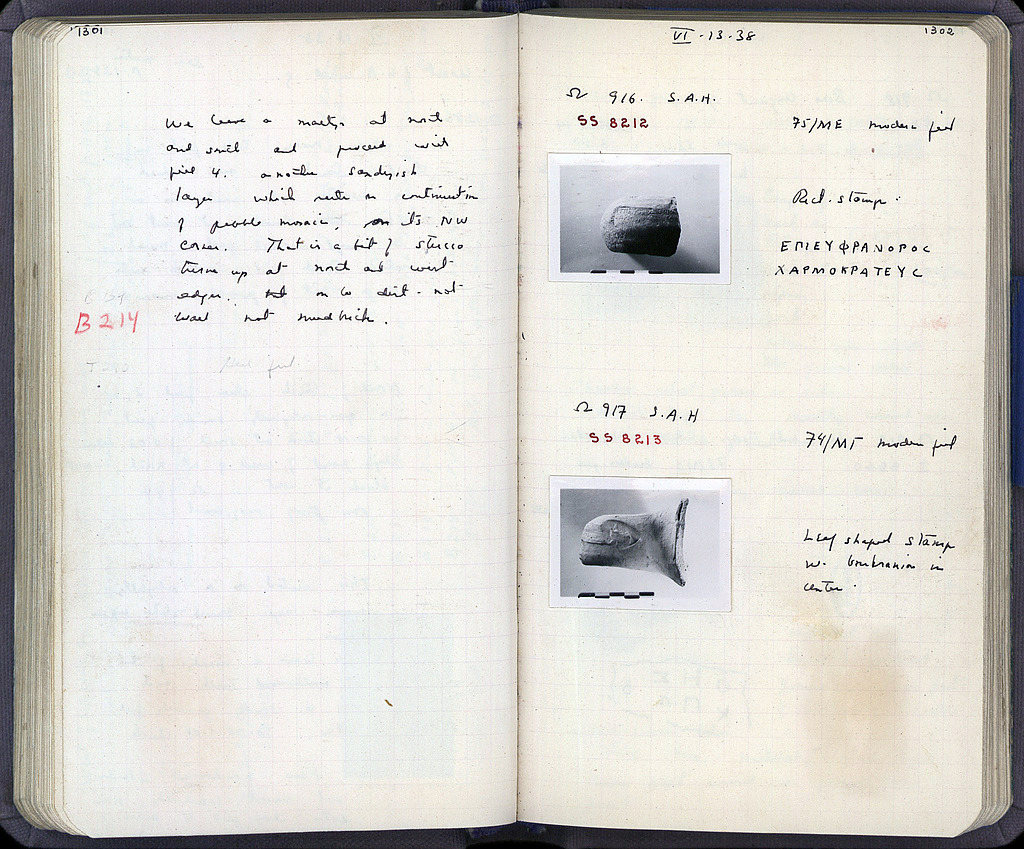 1301
We leave a martyr at north
and south and proceed with
pick 4. another sandyish
layer which rests on continuation
of pebble mosaic, on its NW
corner. That is a bit of stucco
turns up at north and west
edges. on to dirt - not
wall not mudbrick.
B 214
VI - 13 - 38
1302
Ω 916. S.A.H.
SS 8212
75/ME modern fill
Rect. stamp:
ΕΠΙΕΥΦΡΑΝΟΡΟC
ΧΑΡΜΟΚΡΑΤΕΥC
Ω 917 S.A.H
SS 8213
74/ΜΓ modern fill
Leaf shaped stamp
w. in
center.